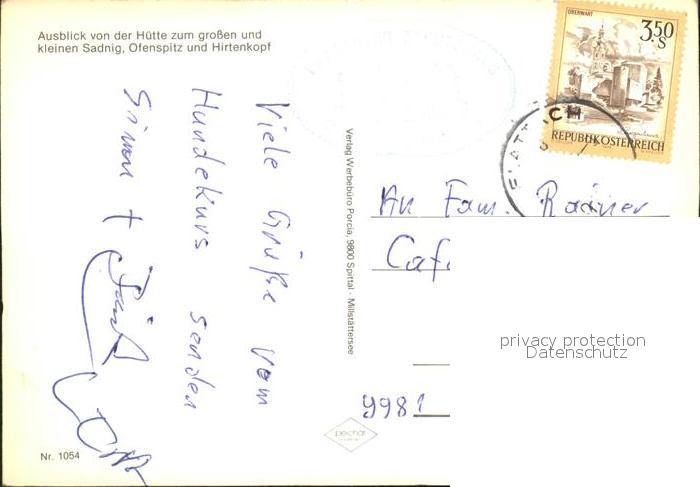 Ausblick von der Hütte zum großen und
kleinen Sadnig, Ofenspitz und Hirtenkopf
Viele Grüße vom
Hundekurs senden
Simon +
Verlag Werbebüro Porcia, 9800 Spittal - Millstättersee
OBERWART
3.50
S
REPUBLIK ÖSTERREICH
An Fam. Rainer
Caf
privacy protection
Datenschutz
9981
pechar
Nr. 1054